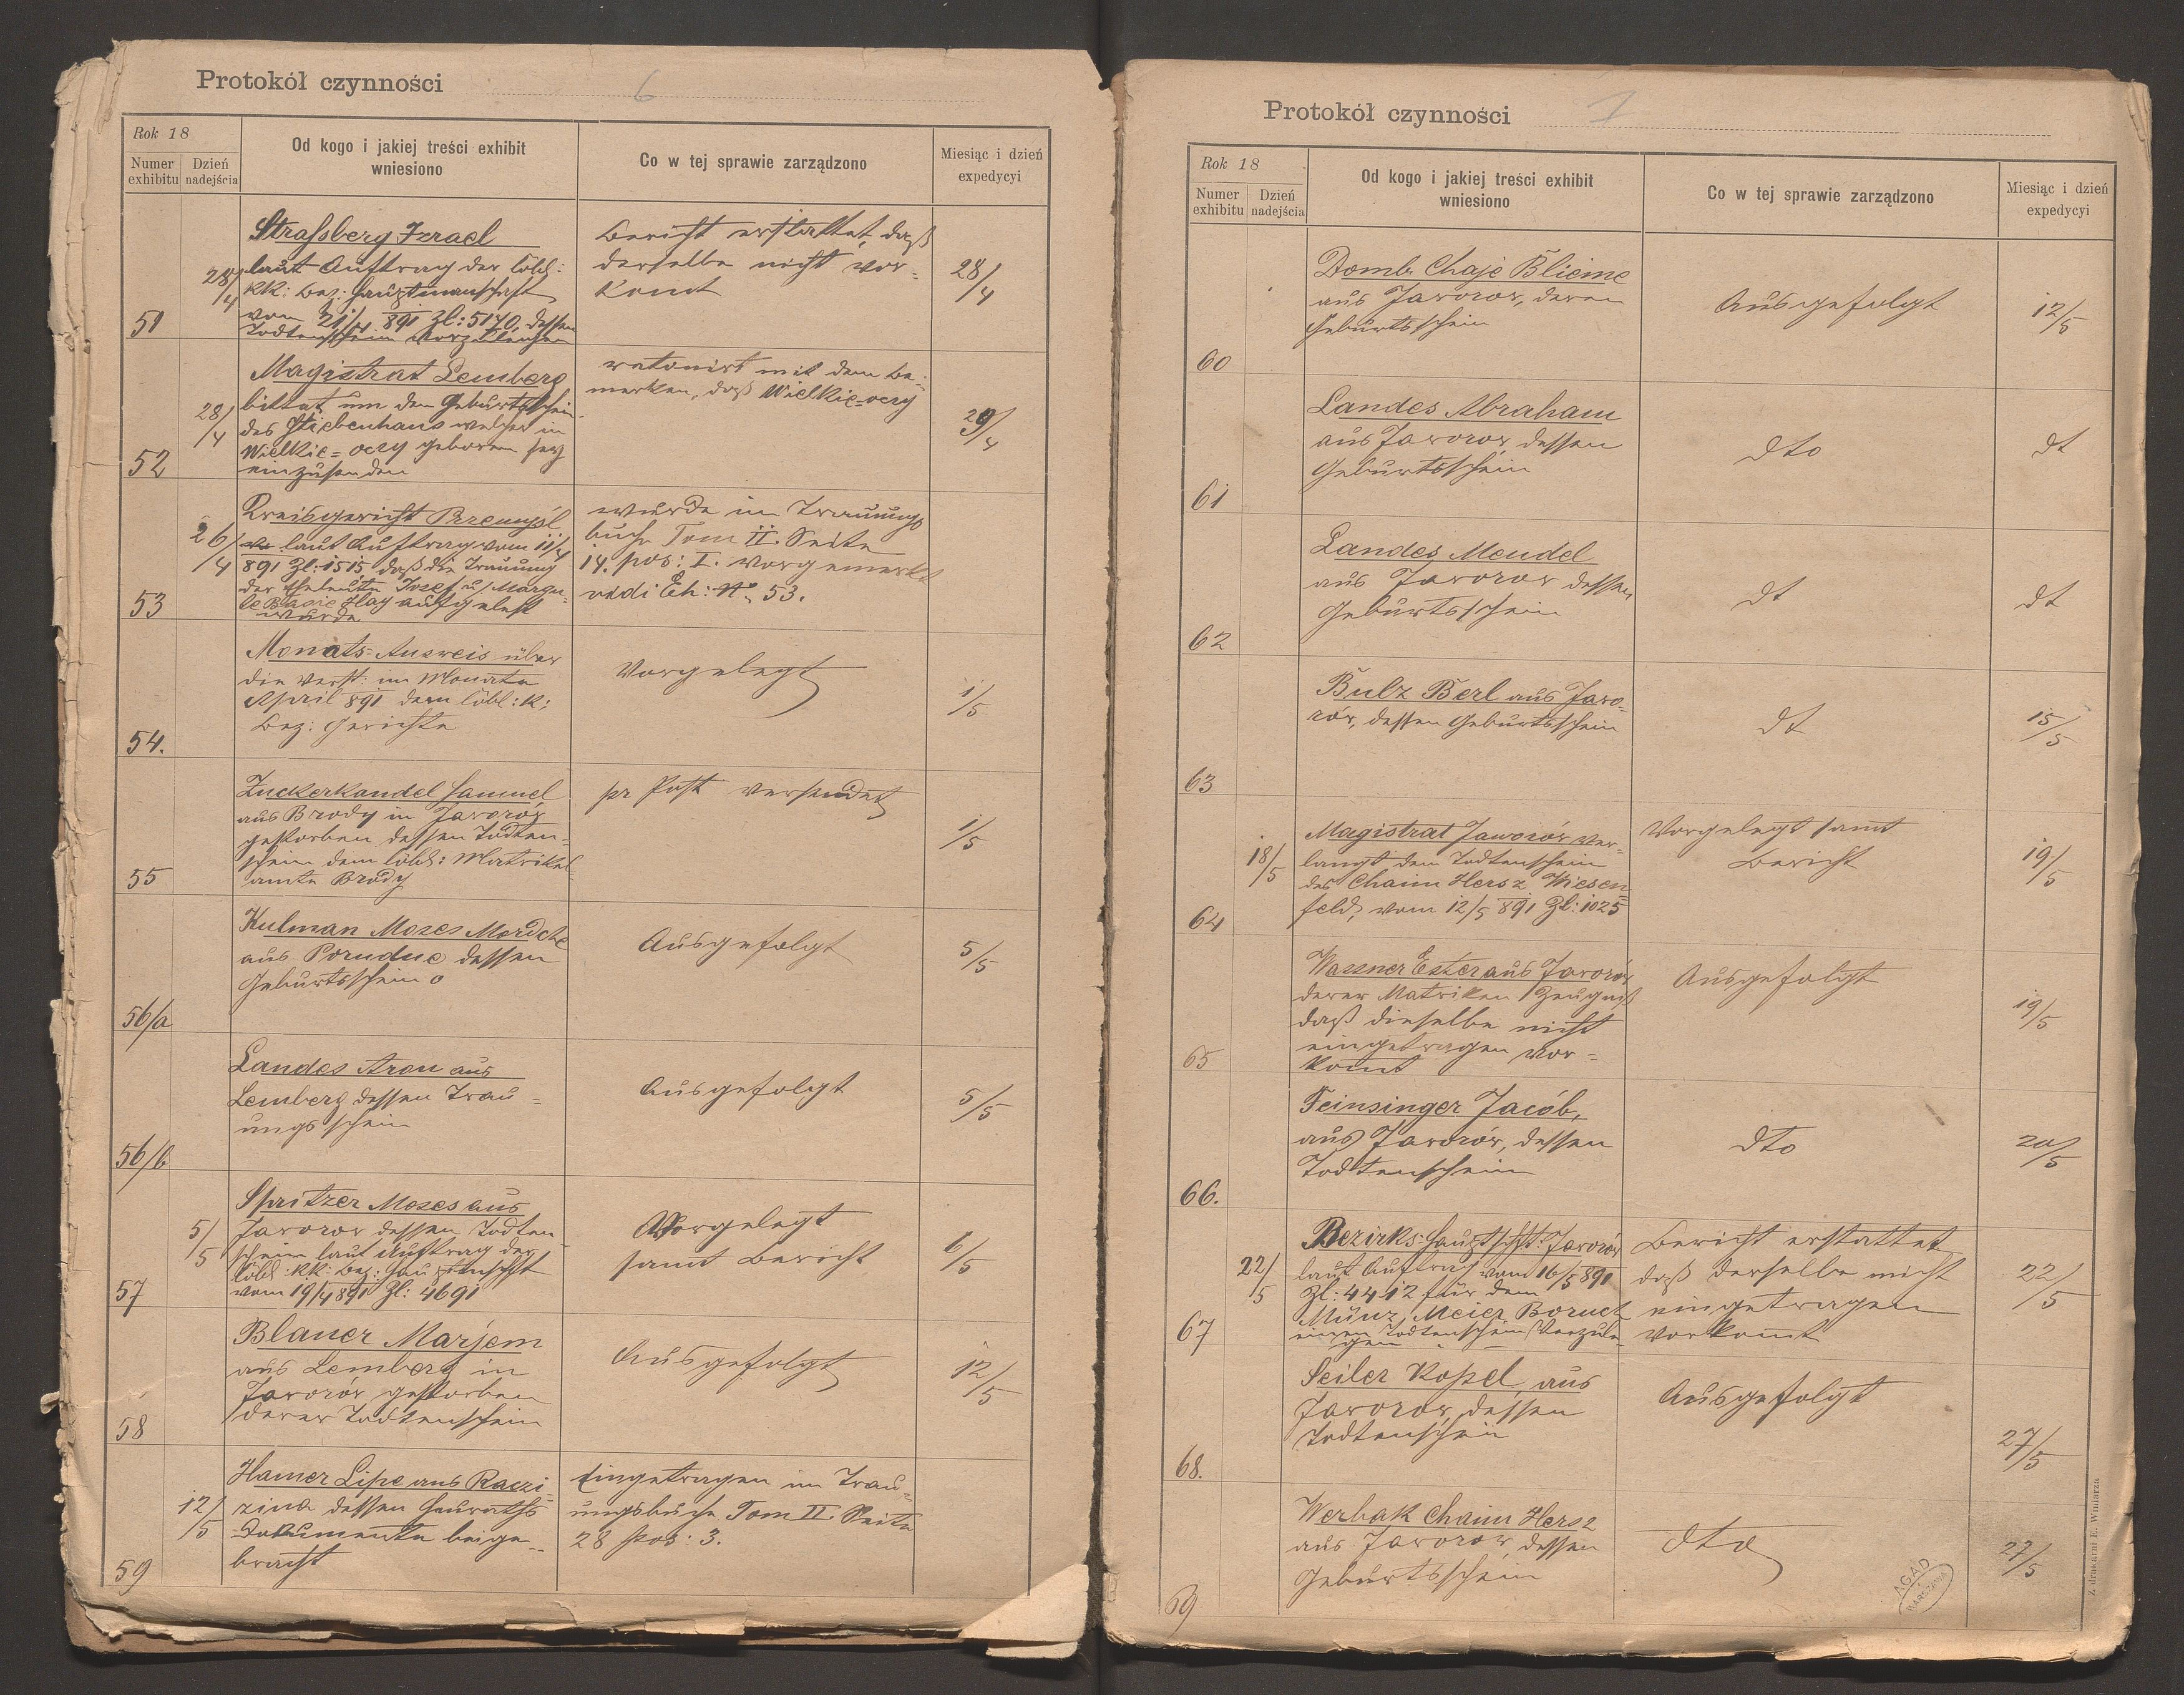 Protokół czynności
6
Rok 18
Numer exhibitu
Dzień nadejścia
Od kogo i jakiej treści exhibit wniesiono
Co w tej sprawie zarządzono
Miesiąc i dzień expedycyi
51
28/4
Strassberg Izrael
laut Auftrag der löbl:
kk: Bez: Hauptmanschaft
vom 21/4 891 Zl: 5170, dessen
Todtenschein vorzulegen
Bericht erstattet, daß
derselbe nicht vor=
komt
28/4
52
28/4
Magistrat Lemberg
bittet um den Geburtsschein
des welcher in
Wielkie=oczy geboren sey
einzusenden
retonirt mit dem be=
merken, daß Wielkie=oczy
29/4
53
26/4
Kreisgericht Przemyśl
laut Auftrag vom 11/4
891 Zl: 1515 daß die Trauung
der Eheleute Josef u. Margu=
le aufgelest
wurde
wurde im Trauungs
buche Tom II. Seite
14. pos: I. vorgemerkt
vidi Eh: No. 53.
54.
Monats=Ausweis über
die Verst: im Monate
April 891 dem löbl: k:
Bez: Gerichte
Vorgelegt
1/5
55
Zuckerkandel Samuel
aus Brody in Javorów
gestorben dessen Todten=
schein dem löbl: Matrikel
amte Brody
pr Post versendet
1/5
56/a
Kulman Moses Mordche
aus Porudne dessen
Geburtsschein
Ausgefolgt
5/5
56/b
Landes Aron aus
Lemberg dessen Trau=
ungsschein
Ausgefolgt
5/5
57
5/5
Spritzer Moses aus
Javorow dessen Todten=
schein laut Auftrag der
löbl: kk: Bez: Hauptmschft
vom 19/4 891 Zl: 4691
Vorgelegt
samt Bericht
6/5
58
Blauer Marjem
aus Lemberg in
Javorów gestorben
derer Todtenschein
Ausgefolgt
12/5
59
12/5
Hamer Lipe aus Raczi=
zina dessen Heuraths
Dokumente beige=
bracht
Eingetragen im Trau=
ungsbuche Tom II. Seite
28 pos: 3.
Protokół czynności
7
Rok 18
Numer exhibitu
Dzień nadejścia
Od kogo i jakiej treści exhibit wniesiono
Co w tej sprawie zarządzono
Miesiąc i dzień expedycyi
60
Domb Chaje Blieme
aus Javorow, deren
Geburtsschein
Ausgefolgt
12/5
61
Landes Abraham
aus Javorow, dessen
Geburtsschein
dto
dt
62
Landes Mendel
aus Javorow dessen
Geburtsschein
dt
dt
63
Bulz Berl aus Javo=
rów, dessen Geburtsschein
dt
15/5
64
18/5
Magistrat Jaworów ver=
langt den Todtenschein
des Chaim Hersz Wiesen=
feld, vom 12/5 891 Zl: 1025
Vorgelegt samt
Bericht
19/5
65
Wassner Ester aus Javorów
derer Matriken Zeugniß
daß dieselbe nicht
eingetragen vor=
komt
Ausgefolgt
19/5
66.
Feinsinger Jacób,
aus Javorów, dessen
Todtenschein
dto
20/5
67
22/5
Bezirks: Hauptschft: Javorów
laut Auftrag vom 16/5 891
Zl: 4412 für dem
Münz, Meier Boruch
einen Todtenschein vorzule=
gen
Bericht erstattet
daß derselbe nicht
eingetragen
vorkomt
22/5
68.
Seiler Kopel, aus
Javorów dessen
Todtenschein
Ausgefolgt
27/5
69
Werbak Chaim Hersz
aus Javorow, dessen
Geburtsschein
dto
27/5
A.G.A.D
WARSZAWA
Z drukarni E. Winiarza